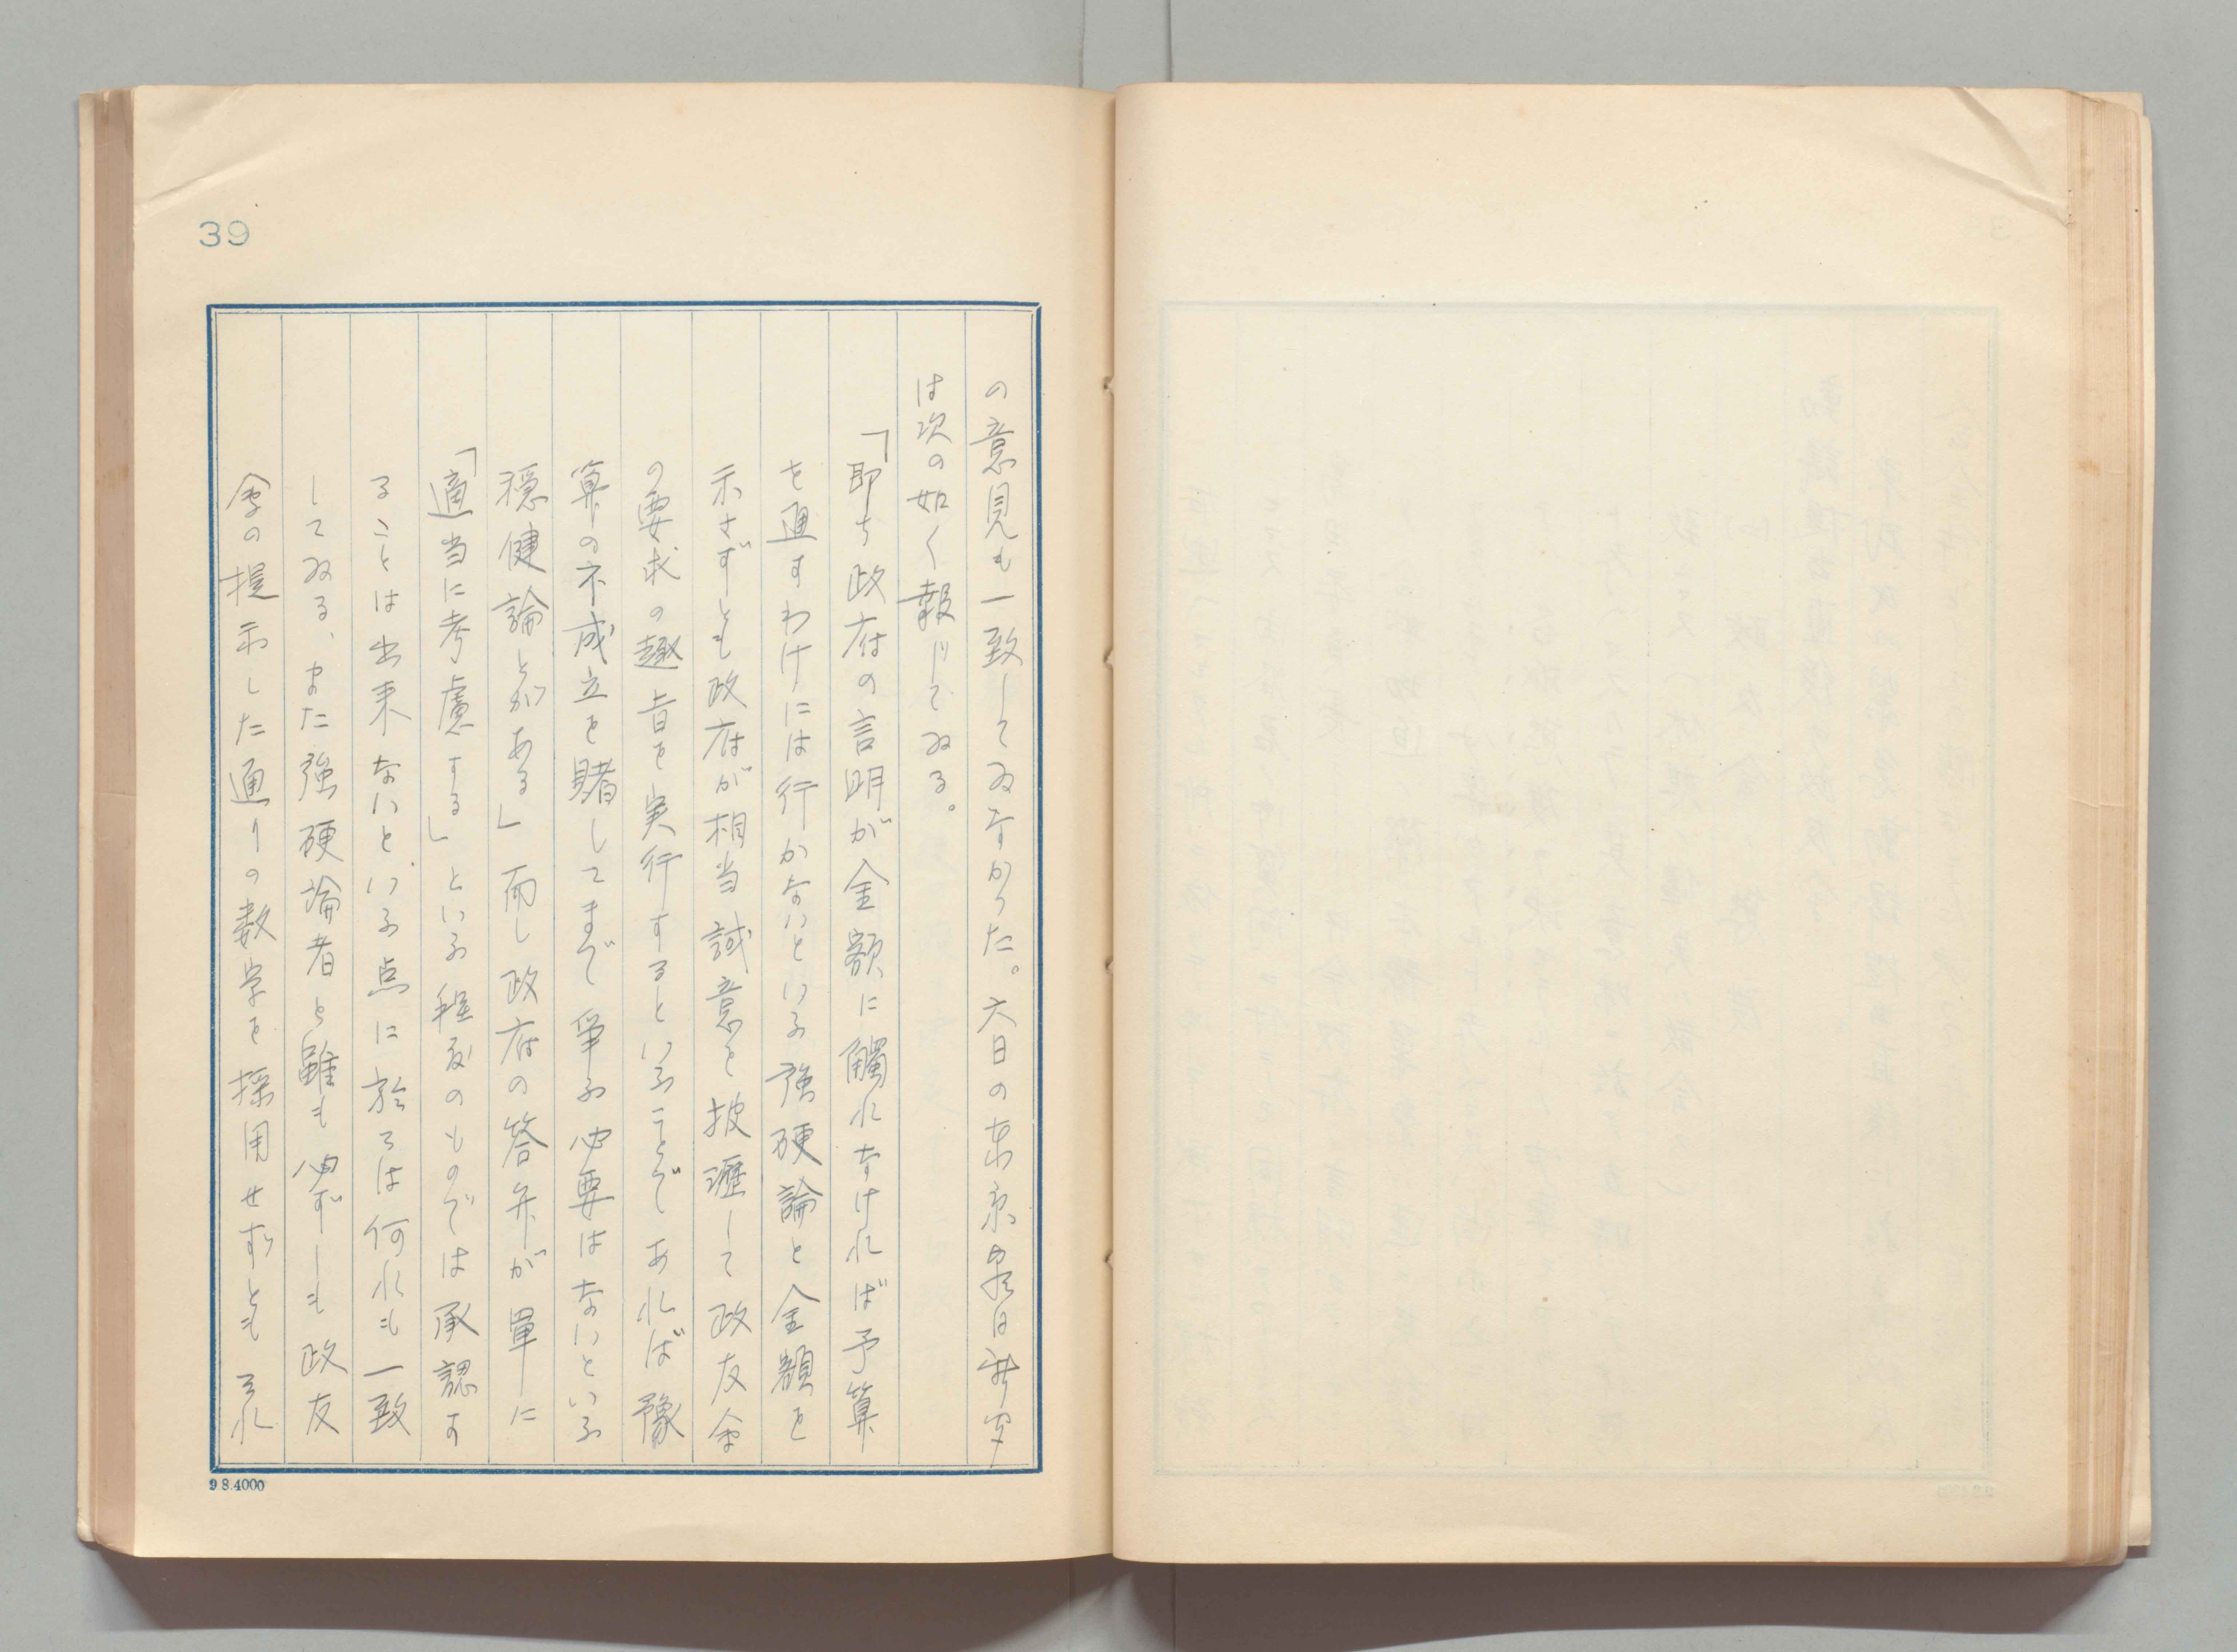 39
の意見も一致してゐなかった。六日の東京朝日新聞
は次の如く報じてゐる。
「即ち政府の言明が金額に觸れなければ予算
を通すわけには行かないといふ強硬論と金額を
示さずとも政府が相当誠意を披瀝して政友会
の要求の趣旨を実行するといふことであれば豫
算の不成立を賭してまで爭ふ必要はないといふ
穏健論とがある」而し政府の答弁が單に
「適当に考慮する」といふ程度のものでは承認す
ることは出来ないといふ点に於ては何れも一致
してゐる、また強硬論者と雖も必ずしも政友
会の提示した通りの数字を採用せずともそれ
9 8.4000